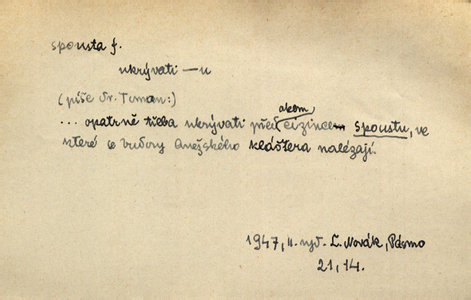 spousta f.
ukrývati —u
(píše Dr. Toman:)
okem
... opatrně třeba ukrývati před cizincem spoustu, ve
které se budovy Anežského kláštera nalézají.
1947, II. vyd. L. Novák, Pásmo
21, 14.